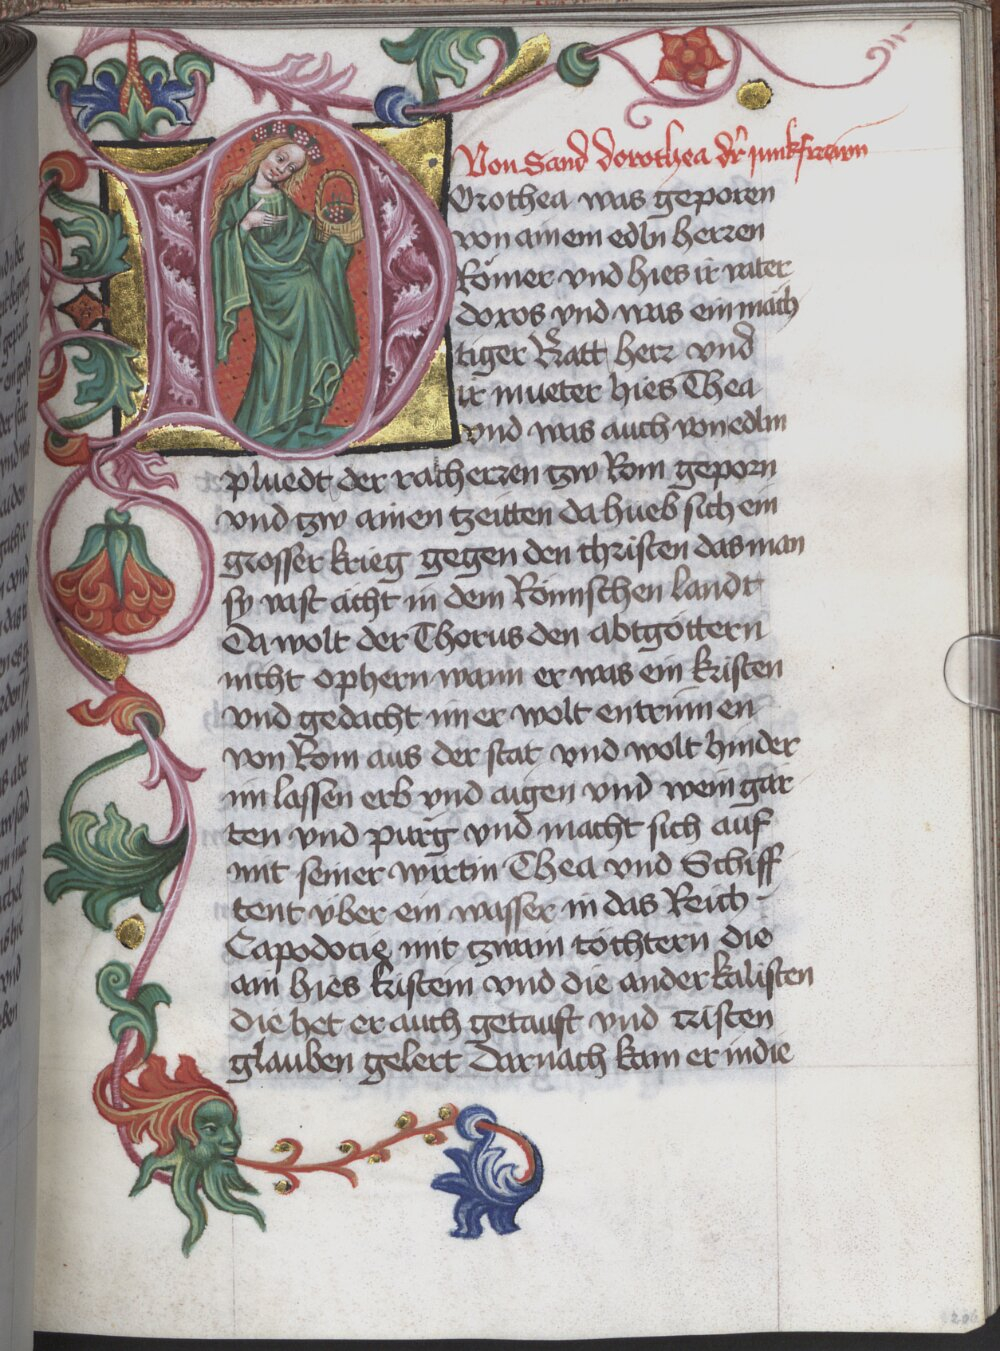 Von Sand dorothea dr̄ junkfrawn
Dorothea was geporen
von ainem edln herren
Römer vnd hies ir vater
doros vnd was ein mäch
tiger Ratt herr vnd
ir mueter hies Thea
vnd was auch von edlm
pluedt der ratherren tzw Rom geporn
vnd tzw ainen tzeitten da hueb sich ein
grosser krieg gegen den christen das man
sy vast ächt in dem Römischen landt
Da wolt der Thorus den abtgöttern
nicht ophern wann er was ein kristen
vnd gedacht im er wolt entrinnen
von Rom aus der stat vnd wolt hinder
im lassen erb vnd aigen vnd weingar
ten vnd purg vnd macht sich auf
mit seiner wirtin Thea vnd Schiff
tent vber ein wasser in das Reich
Capodocie mit tzwain töchtern die
ain hies kristein vnd die ander kalisten
die het er auch getauft vnd cristen
glauben gelert Darnach kam er in die